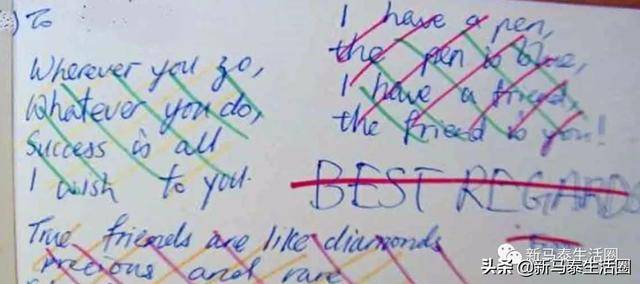 To
Wherever you go,
Whatever you do,
Success is all
I wish to you.
I have a pen,
the pen is blue,
I have a friend,
the friend is you!
BEST REGARDS
True friends are like diamonds
precious and rare
新马泰生活圈
头条 @新马泰生活圈